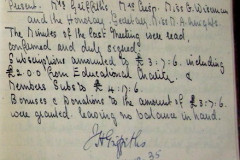 Present. Mrs Griffiths, Mrs Cusp. Miss G. Wiseman
and the Honorary Secretary, Miss M. A. Knights.
The Minutes of the last meeting were read,
confirmed and duly signed.
Subscriptions amounted to £3:7:6. including
£2.0.0 from Educational Charity. &
Members Subs to £4:17:6.
Bonuses & Donations to the amount of £3:7:6.
were granted. leaving no balance in hand.
J H Griffiths
35